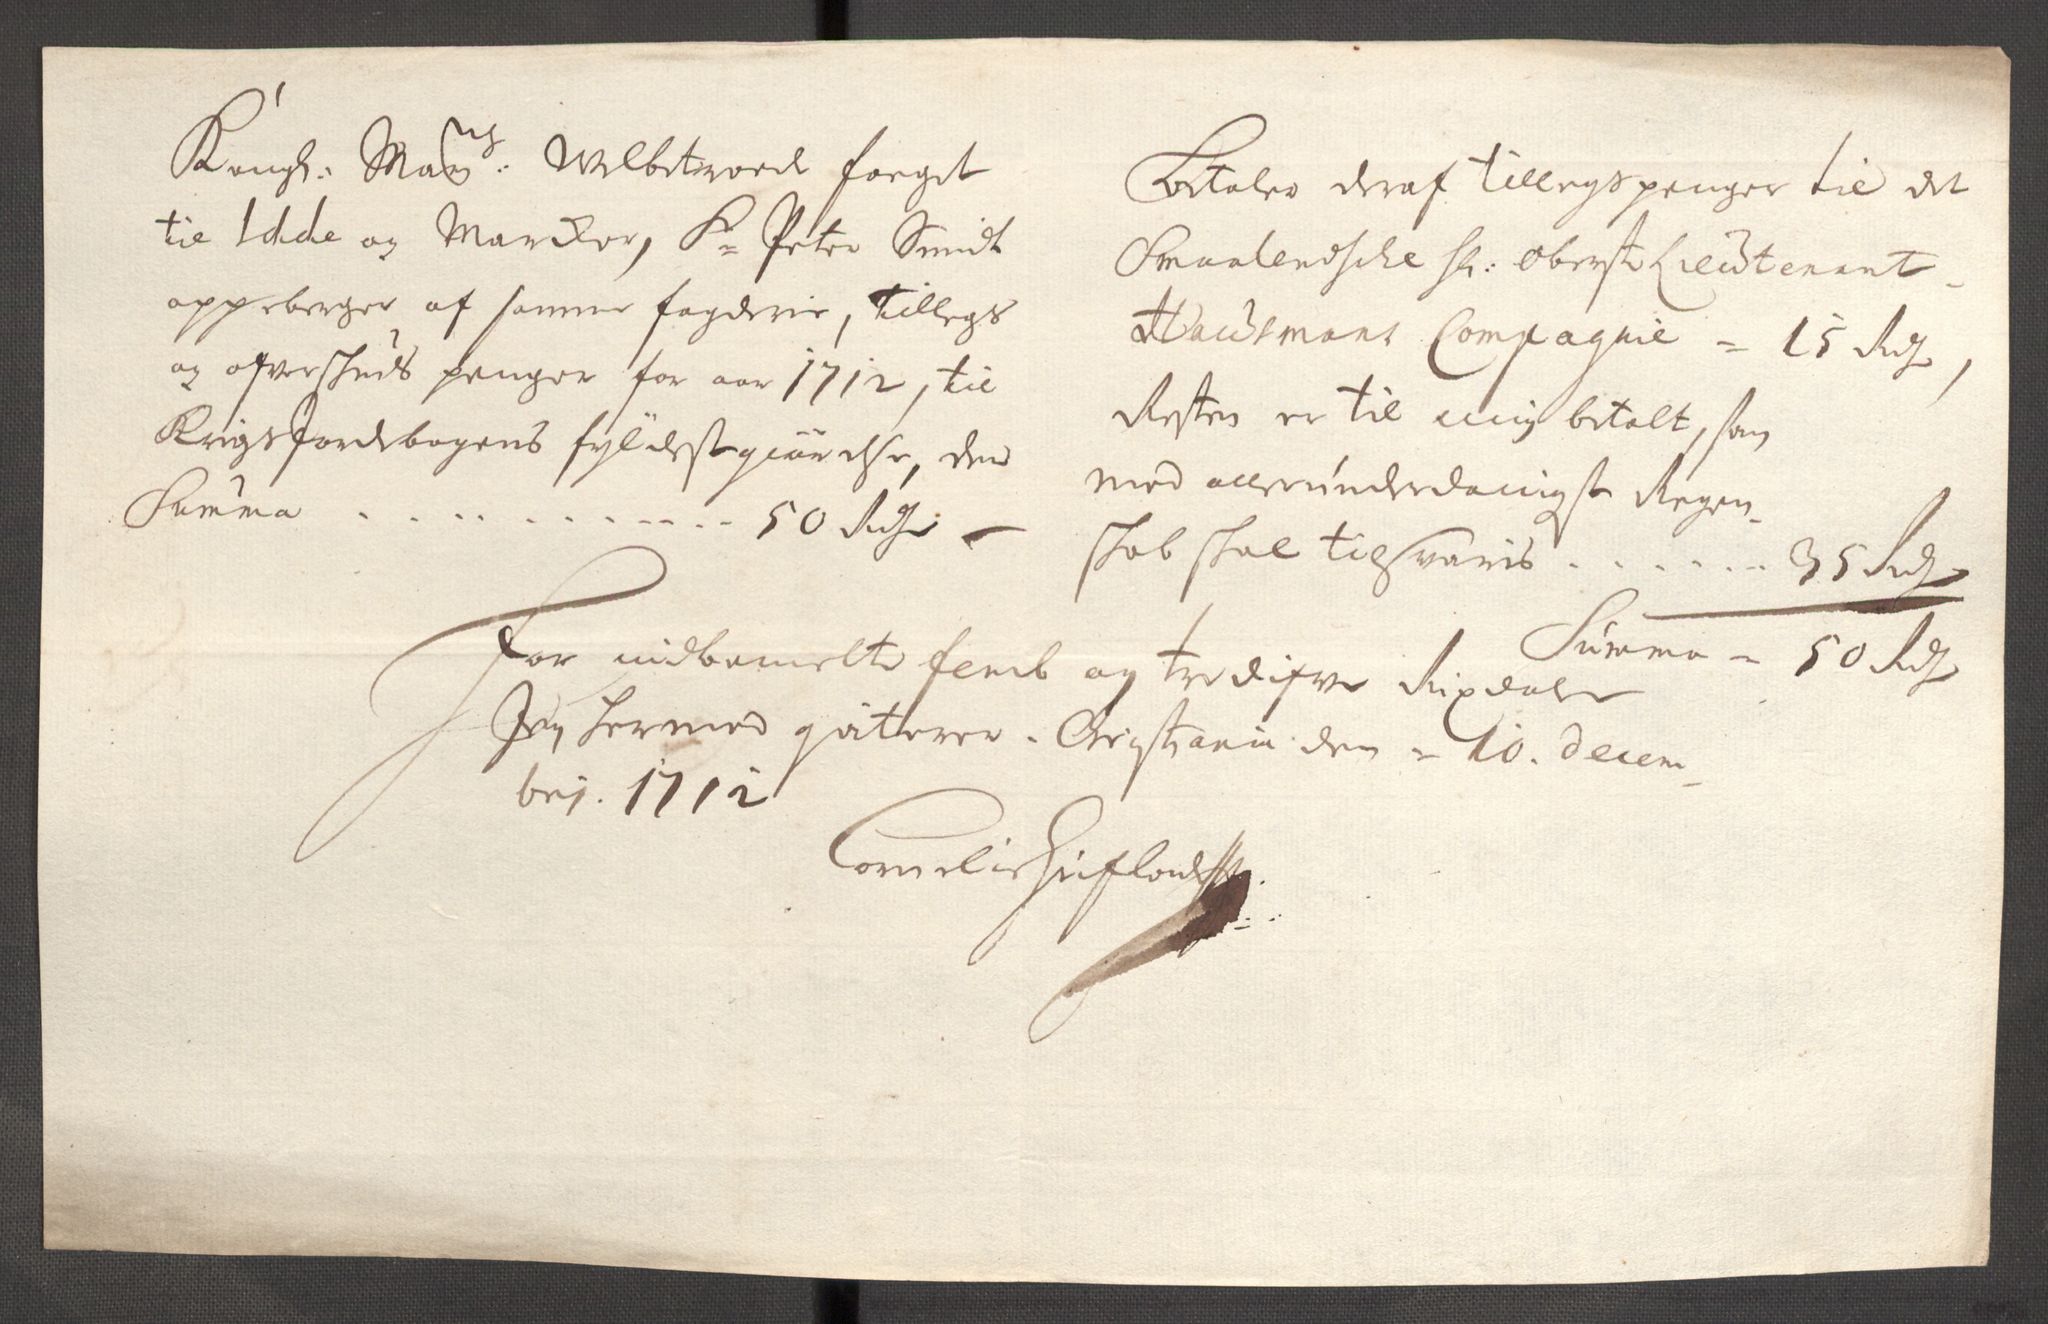 Kongl: May:ts Welbetroede foeget
til Idde og Marcker, Sr Peter Smidt
oppeberger af samme fogderie, tillegs
og ofverskuds penger for aar 1712, til
Krigs Jordebogens fyldestgiørelse, den
Summa . . . . . . . . . . . 50 Rdr
Betaler deraf tillegs penger til det
Smaalendsche hr: Oberste Lieutenant
Hausmans Compagnie = 15 Rdr,
Resten er til mig betalt, som
med allerunderdanigst Regen-
skab skal tilsvaris . . . . . . . 35 Rdr
Summa = 50 Rdr
For indbemelte femb og tredifve Rixdaler
Jeg hermed qviterer. Christania den = 10. Decem-
bris. 1712
Cornelis